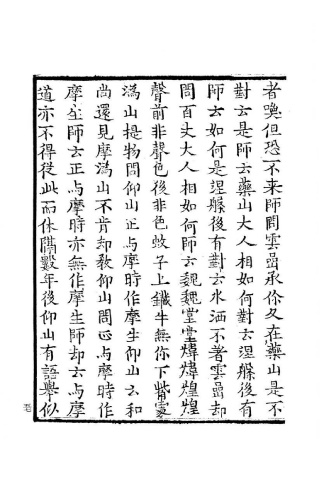 者喚但恐不来師問雲嵒承伱久在藥山是不
對云是師云藥山大人相如何對云涅槃後有
師云如何是涅槃後有對云水洒不著雲嵒却
問百丈大人相如何師云魏魏堂堂煒煒煌煌
聲前非聲色後非色蚊子上鐵牛無你下觜處
溈山提物問仰山正与摩時作摩生仰山云和
尚還見摩溈山不肯却教仰山問正与摩時作
摩生師云正与摩時亦無作摩生師却云与摩
道亦不得從此而休隔數年後仰山有語舉似